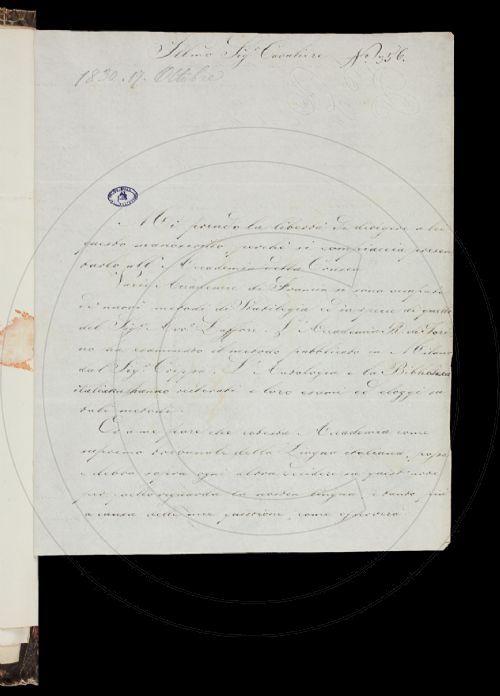 Illmo Sigr Cavaliere No 356.
1830. 17. Ottobre
Mi prendo la libertà di dirigere a lei
questo manoscritto, perchè si compiaccia presen
tarlo all' Accademia della Crusca
Varie Accademie di Francia si sono occupate
di nuovi metodi di ed in specie di quello
del Sigr L'Accademia R. di Tori
no ha esaminato il metodo pubblicato in Milano
dal Sigr L'Antologia e la Biblioteca
italiana hanno i loro esami ed elogj su
tale metodo.
Ora a me pare che codesta Accademia come
supremo tribunale della Lingua italiana, possa
e debba sopra ogni altra decidere su
per nostra lingua, e tanto più
a causa delle mie come